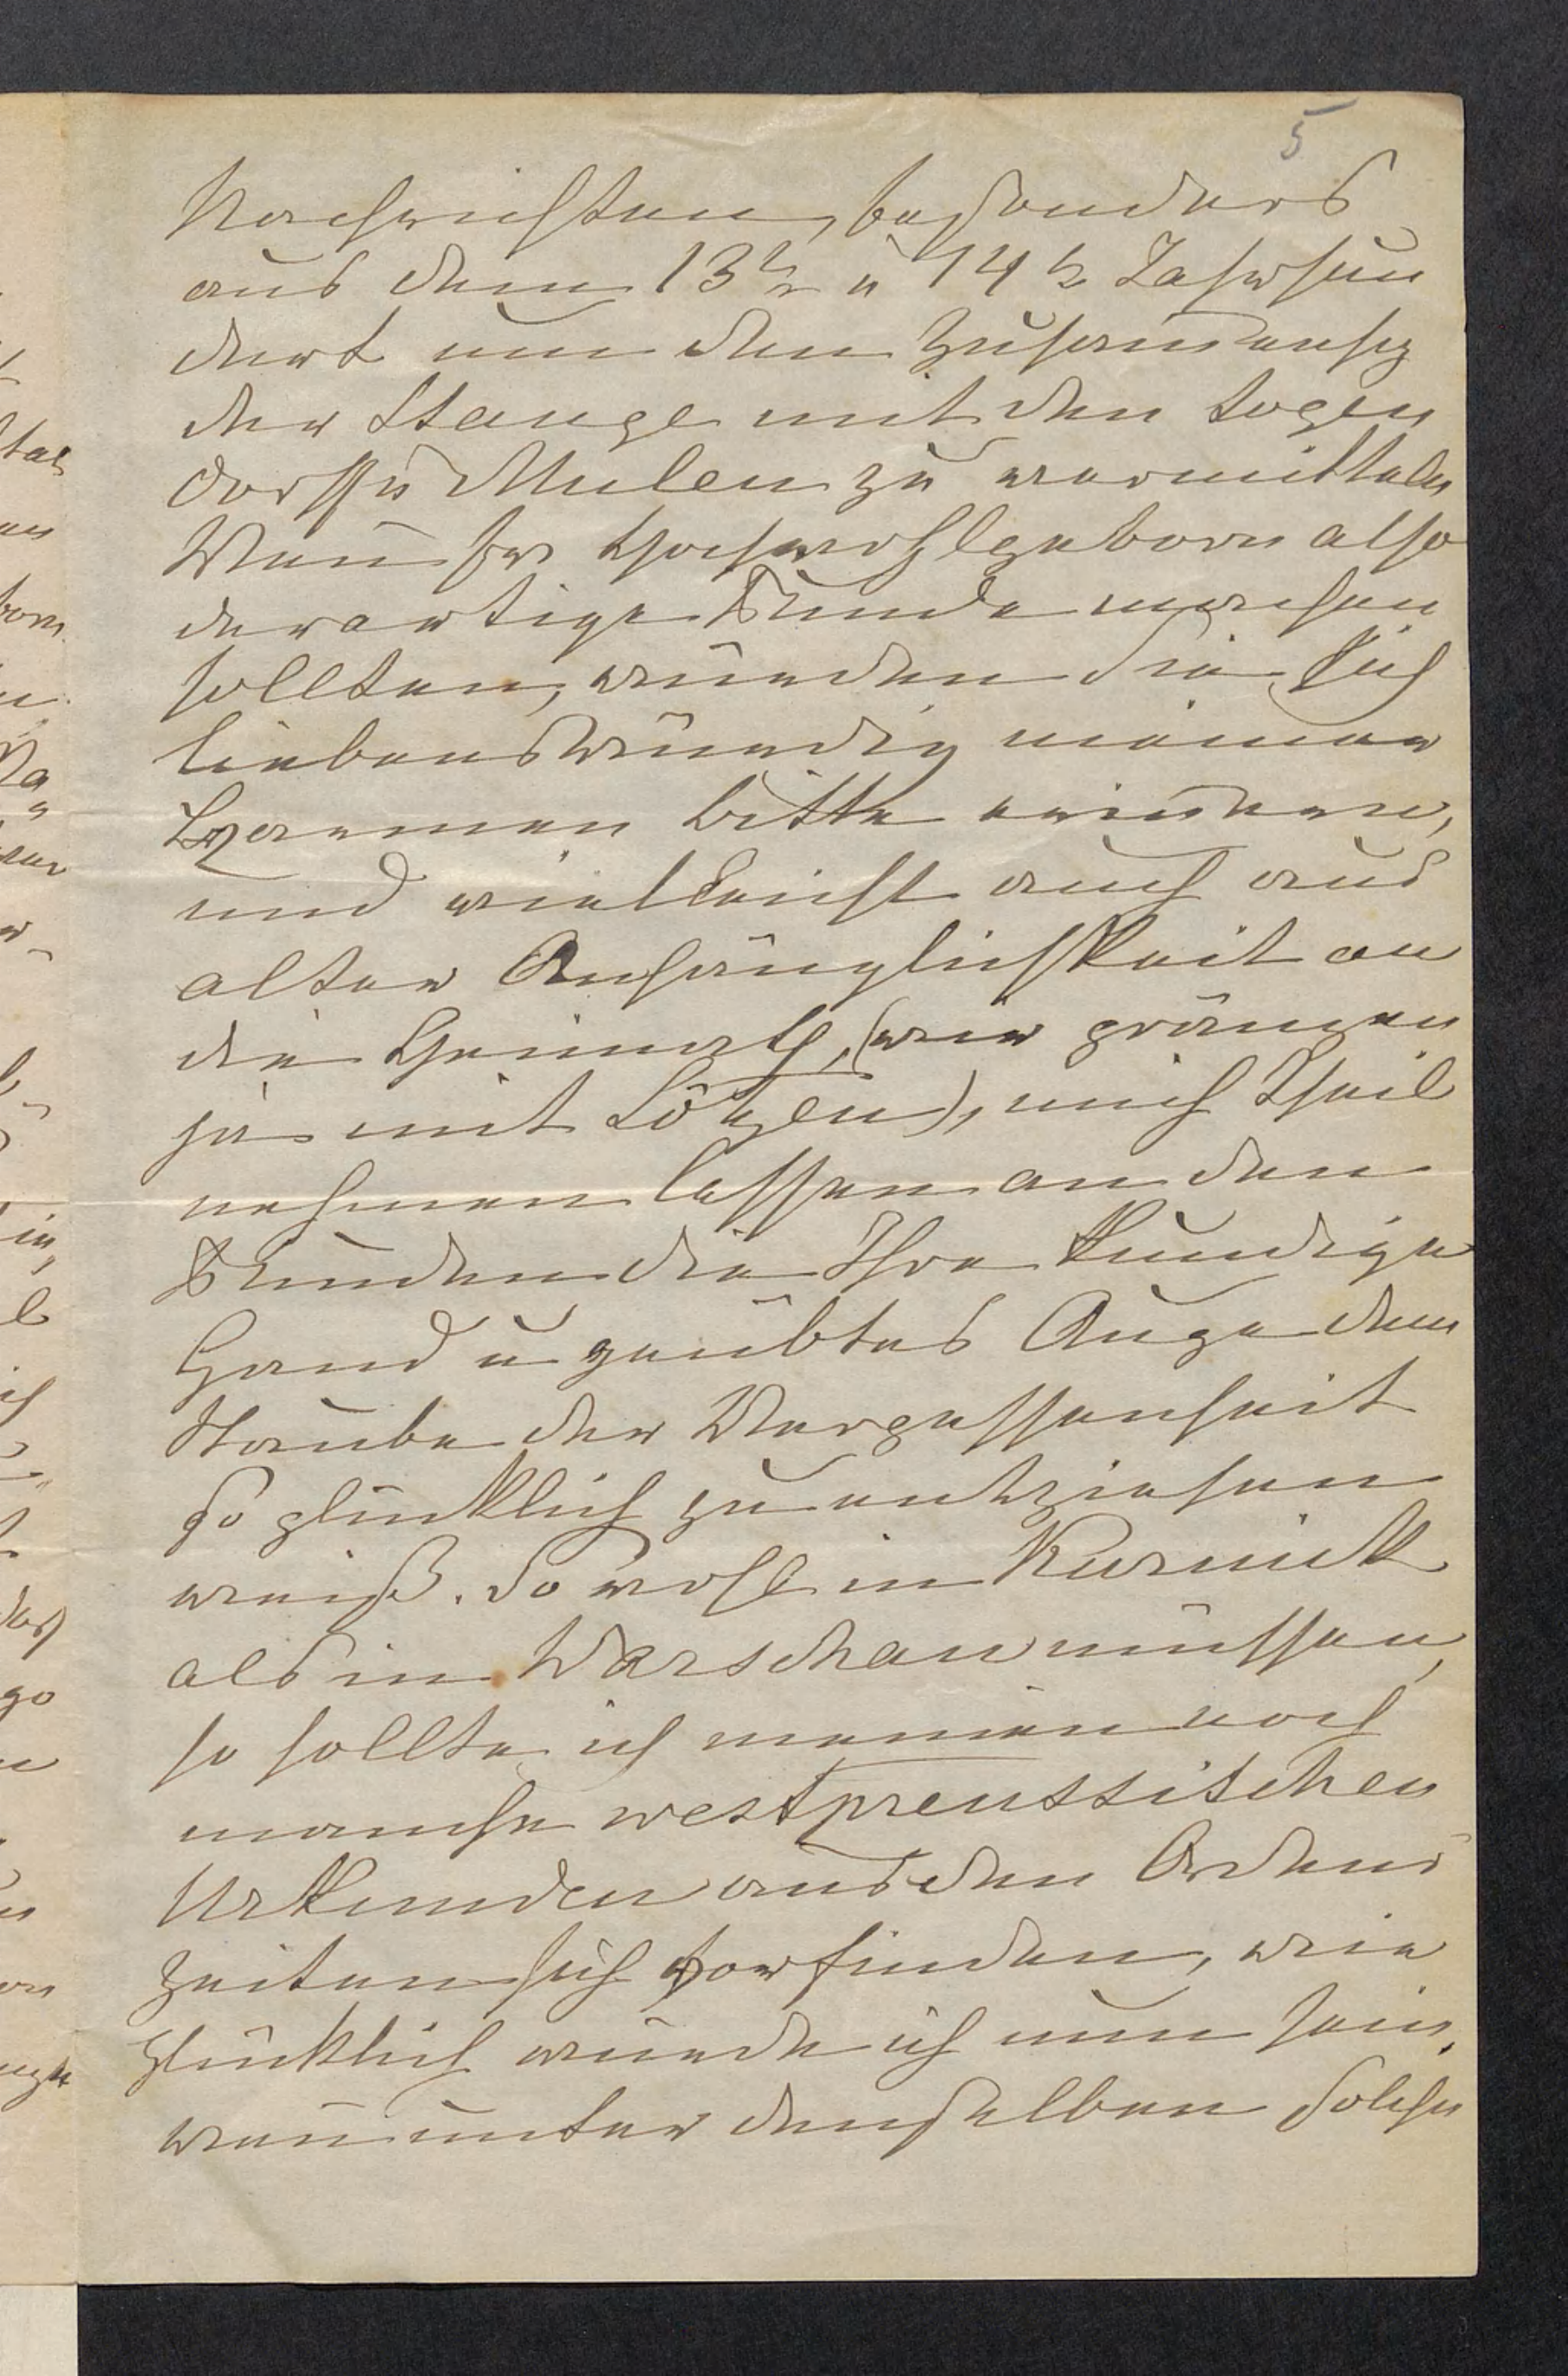 5
Nachrichten, besonders
aus dem 13t u 14t Jahrhun
dert um den Zusammenhg
der Stange mit den Logen
dorff u Mulen zu vermitteln
Wenn Ew Hochwohlgeboren also
derartige Funde machen
sollten, würden Sie sich
liebenswürdig meiner
bitte erinnern,
und vielleicht auch aus
alter Anhänglichkeit an
die Heimath, (wir gränzen
ja mit Lötzen), mich Theil
nehmen lassen an den
Funden die Ihre kundige
Hand u geübtes Auge dem
Staube der Vergessenheit
so glücklich zu entziehen
weiß. So wohl in Kurnik
als in Warschau müssen,
so sollte ich meinen noch
manche westpreussischen
Urkunden aus den Ordens
zeiten sich vorfinden, wie
glücklich würde ich nun sein,
wenn unter denselben solche